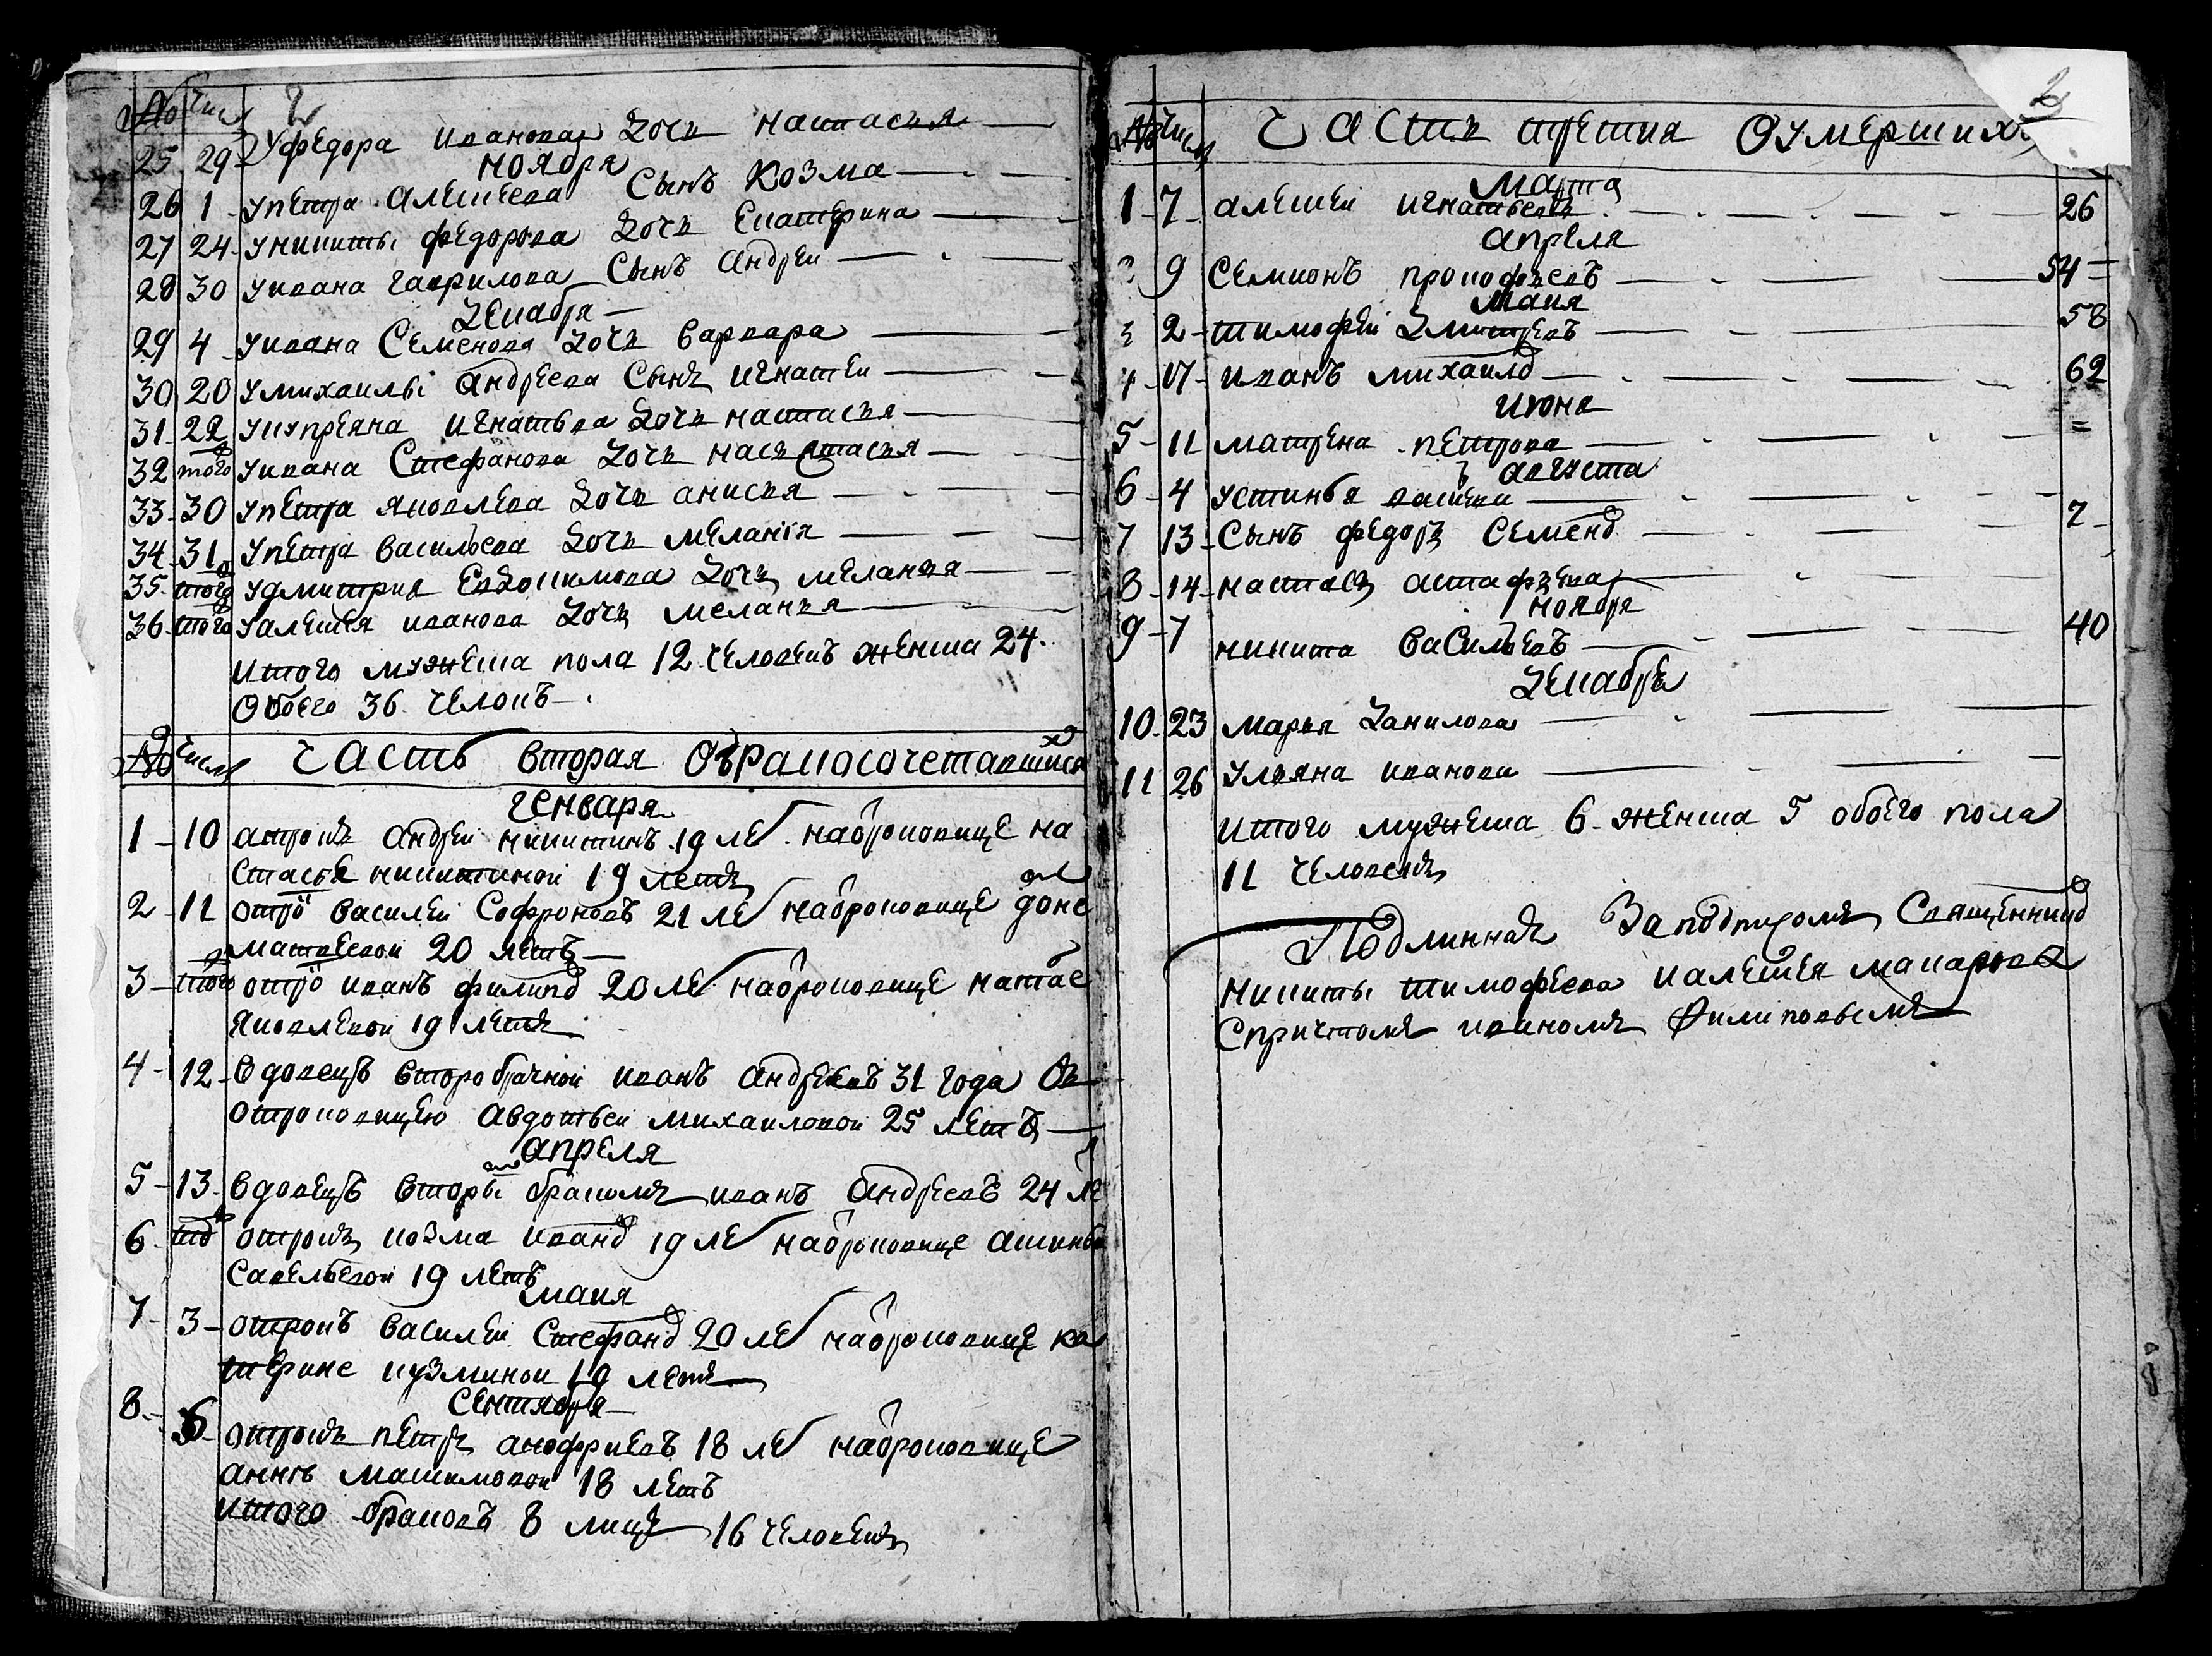 № Числ 2
25 29 У федора иванова дочь настасья
ноября
26 1 У петра алексеева Сынъ Козма
27 24 У никиты федорова дочь екатерина
28 30 У ивана гаврилова Сынъ андреи
декабря
29 4 У ивана Семенова дочь варвара
30 20 У михаилы андреева Сынъ игнатеи
31 22 У куприяна игнатьва дочь настасья
32 того У ивана Стефанова дочь настасья
33 30 У петра яковлева дочь анисья
34 31 У петра васильева дочь меланія
35 того У дмитрия Евдокимова дочь меланья
36 того У алексея иванова дочь меланья
Итого мужеска пола 12 человекъ женска 24.
Обоего 36 человкъ
№ Числа Часть вторая Обракосочетавшихся
генваря
1 10 отрокъ андреи никитинъ 19 ле на отроковице на
стасье никитиной 19 летъ
2 11 отро василеи Софроновъ 21 ле на отроковице доне
матвеевой 20 летъ
3 того отро иванъ филипо 20 ле на отроковице натае
яковлевои 19 летъ
4 12 Вдовецъ второбрачнои иванъ андреевъ 31 года Съ
отроковицею авдотьеи михаиловои 25 летъ
апреля
5 13 Вдовецъ вторы бракомъ иванъ андреевъ 24 ле
6 то отрокъ козма ивано 19 ле на отроковице аксинье
Савельевои 19 летъ
маия
7 3 отрокъ василеи Стефано 20 ле на отроковице ка
терине кузминои 19 летъ
сентября
8 6 отрокъ петръ анофриевъ 18 ле на отроковице
аннѣ максимовои 18 летъ
итого браковъ 8 лицъ 16 человекъ
№ Числа Часть третия Оумершихъ 2
марта
1 7 алексеи игнатьевъ 26
апреля
2 9 Семионъ прокофьевъ 54
маия
3 2 тимофеи дмитревъ 58
4 17 иванъ михаило 62
июня
5 11 матрена петрова
августа
6 4 устинья
7 13 Сынъ федоръ Семено 2
8 14 настась астафьева
ноября
9 7 никита васильевъ 40
декабря
10 23 марья данилова
11 26 ульяна иванова
итого мужеска 6 женска 5 обоего пола
11 человекъ
Подлинная За подписомъ Священнико
никиты тимофеева иалексея макарова
Спричтомъ иваномъ Филиповымъ